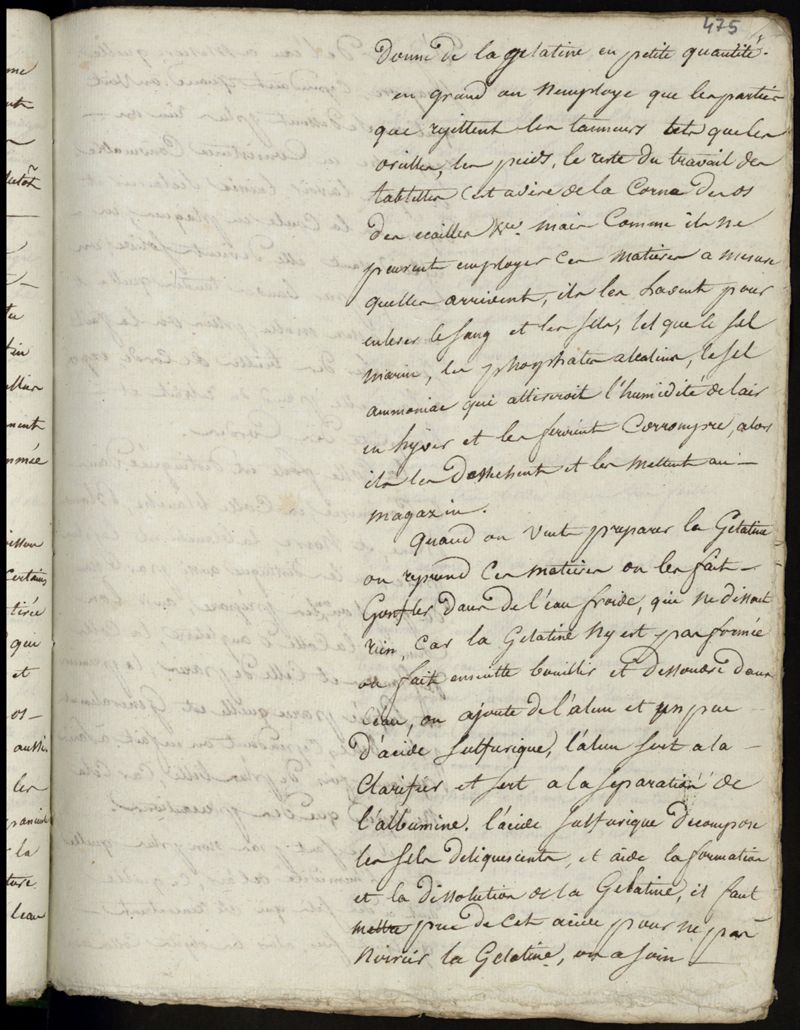 475
Donne de la gelatine en petite quantité.
en grand on N'employe que les parties
que rejettent les tanneurs tels que les
oreilles, les pieds, le reste du travail des
tabletiers c'est a dire de la Corne des os
des ecailles &ce. mais Comme ils ne
peuvent employer ces matieres a mesure
quelles arrivent, ils les Lavent pour
enlever le sang et les sels, tel que le sel
marin, les phosphates alcalins, le sel
ammoniac qui attireroit l'humidité de l'air
en hyver et les feroient Corrompre, alors
ils les dessechent et les mettent au
magazin.
Quand on veut preparer la Gelatine
on reprend ces matieres on les fait
Gonfler dans de l'eau froide, qui ne dissout
rien, car la Gelatine N'y est pas formée
on fait ensuitte bouillir et dissoudre dans
l'eau, on ajoute de l'alun et un peu
d'acide sulfurique, l'alun sert a la
Clarifier et sert a la separation de
l'albumine. l'acide sulfurique decompose
les sels deliquescents, et aide la formation
et la dissolution de la Gelatine, il faut
mettre peu de cet acide pour ne pas
Noircir la Gelatine, on a soin
me
nt
plutôt
tu
tin
ment
mmée
isson
certains
tirée
qui
et
os
aussi
les
la
ture
l'eau